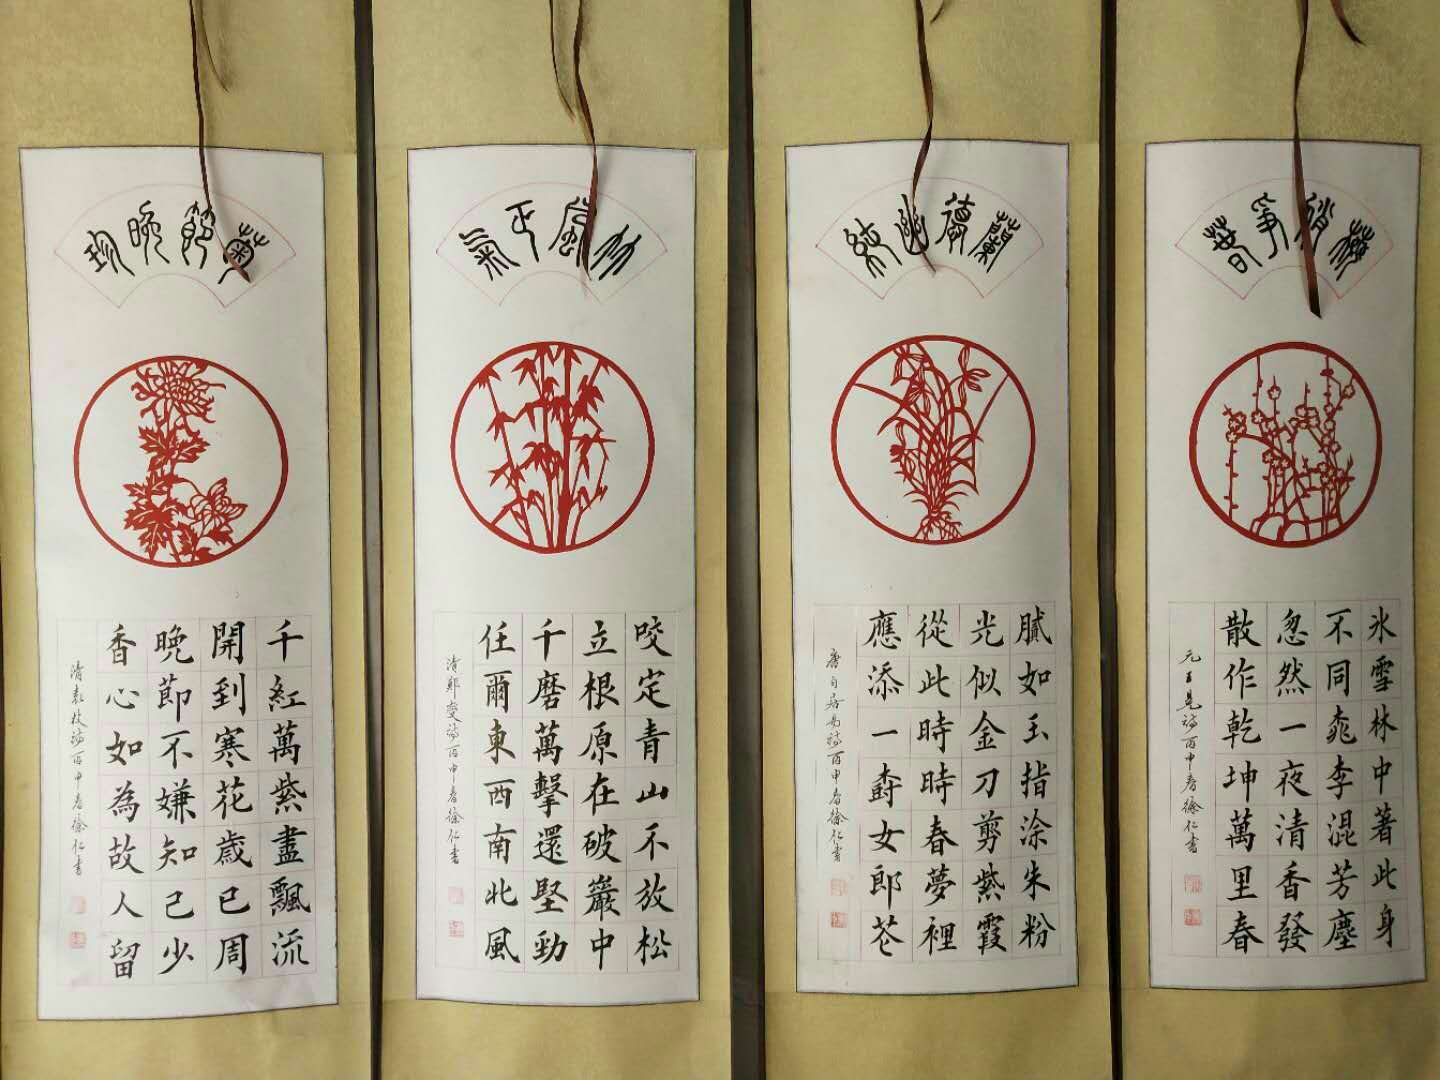 梅俏爭春
氷雪林中著此身
不同桃李混芳塵
忽然一夜清香發
散作乾坤萬里春
元王冕詩丙申春徐仁書
蘭德幽純
膩如玉指涂朱粉
光似金刀剪紫霞
從此時時春夢裡
應添一樹女郎花
唐白居易詩丙申春徐仁書
竹風正氣
咬定青山不放松
立根原在破巖中
千磨萬擊還堅勁
任爾東西南北風
清鄭燮詩丙申春徐仁書
菊節晚珍
千紅萬紫盡飄流
開到寒花歲已周
晚節不嫌知己少
香心如為故人留
清袁枚詩丙申春徐仁書